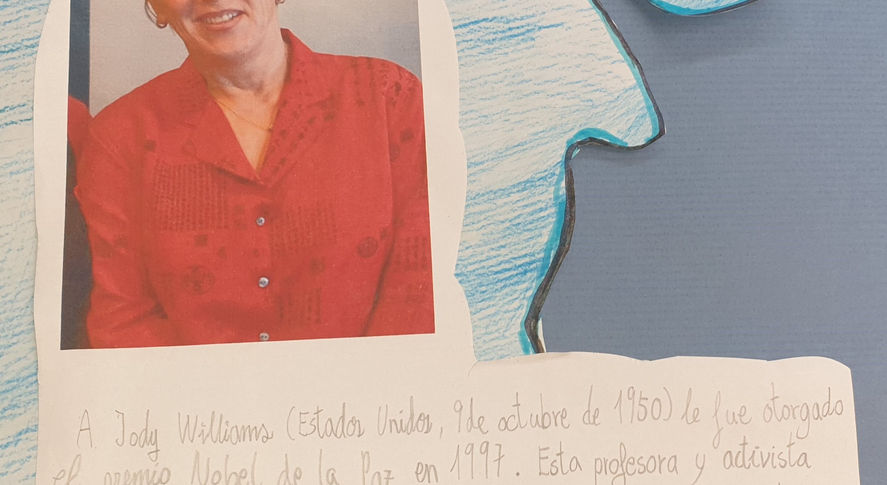 A Jody Williams (Estados Unidos, 9 de octubre de 1950) le fue otorgado
el premio Nobel de la Paz en 1997. Esta profesora y activista